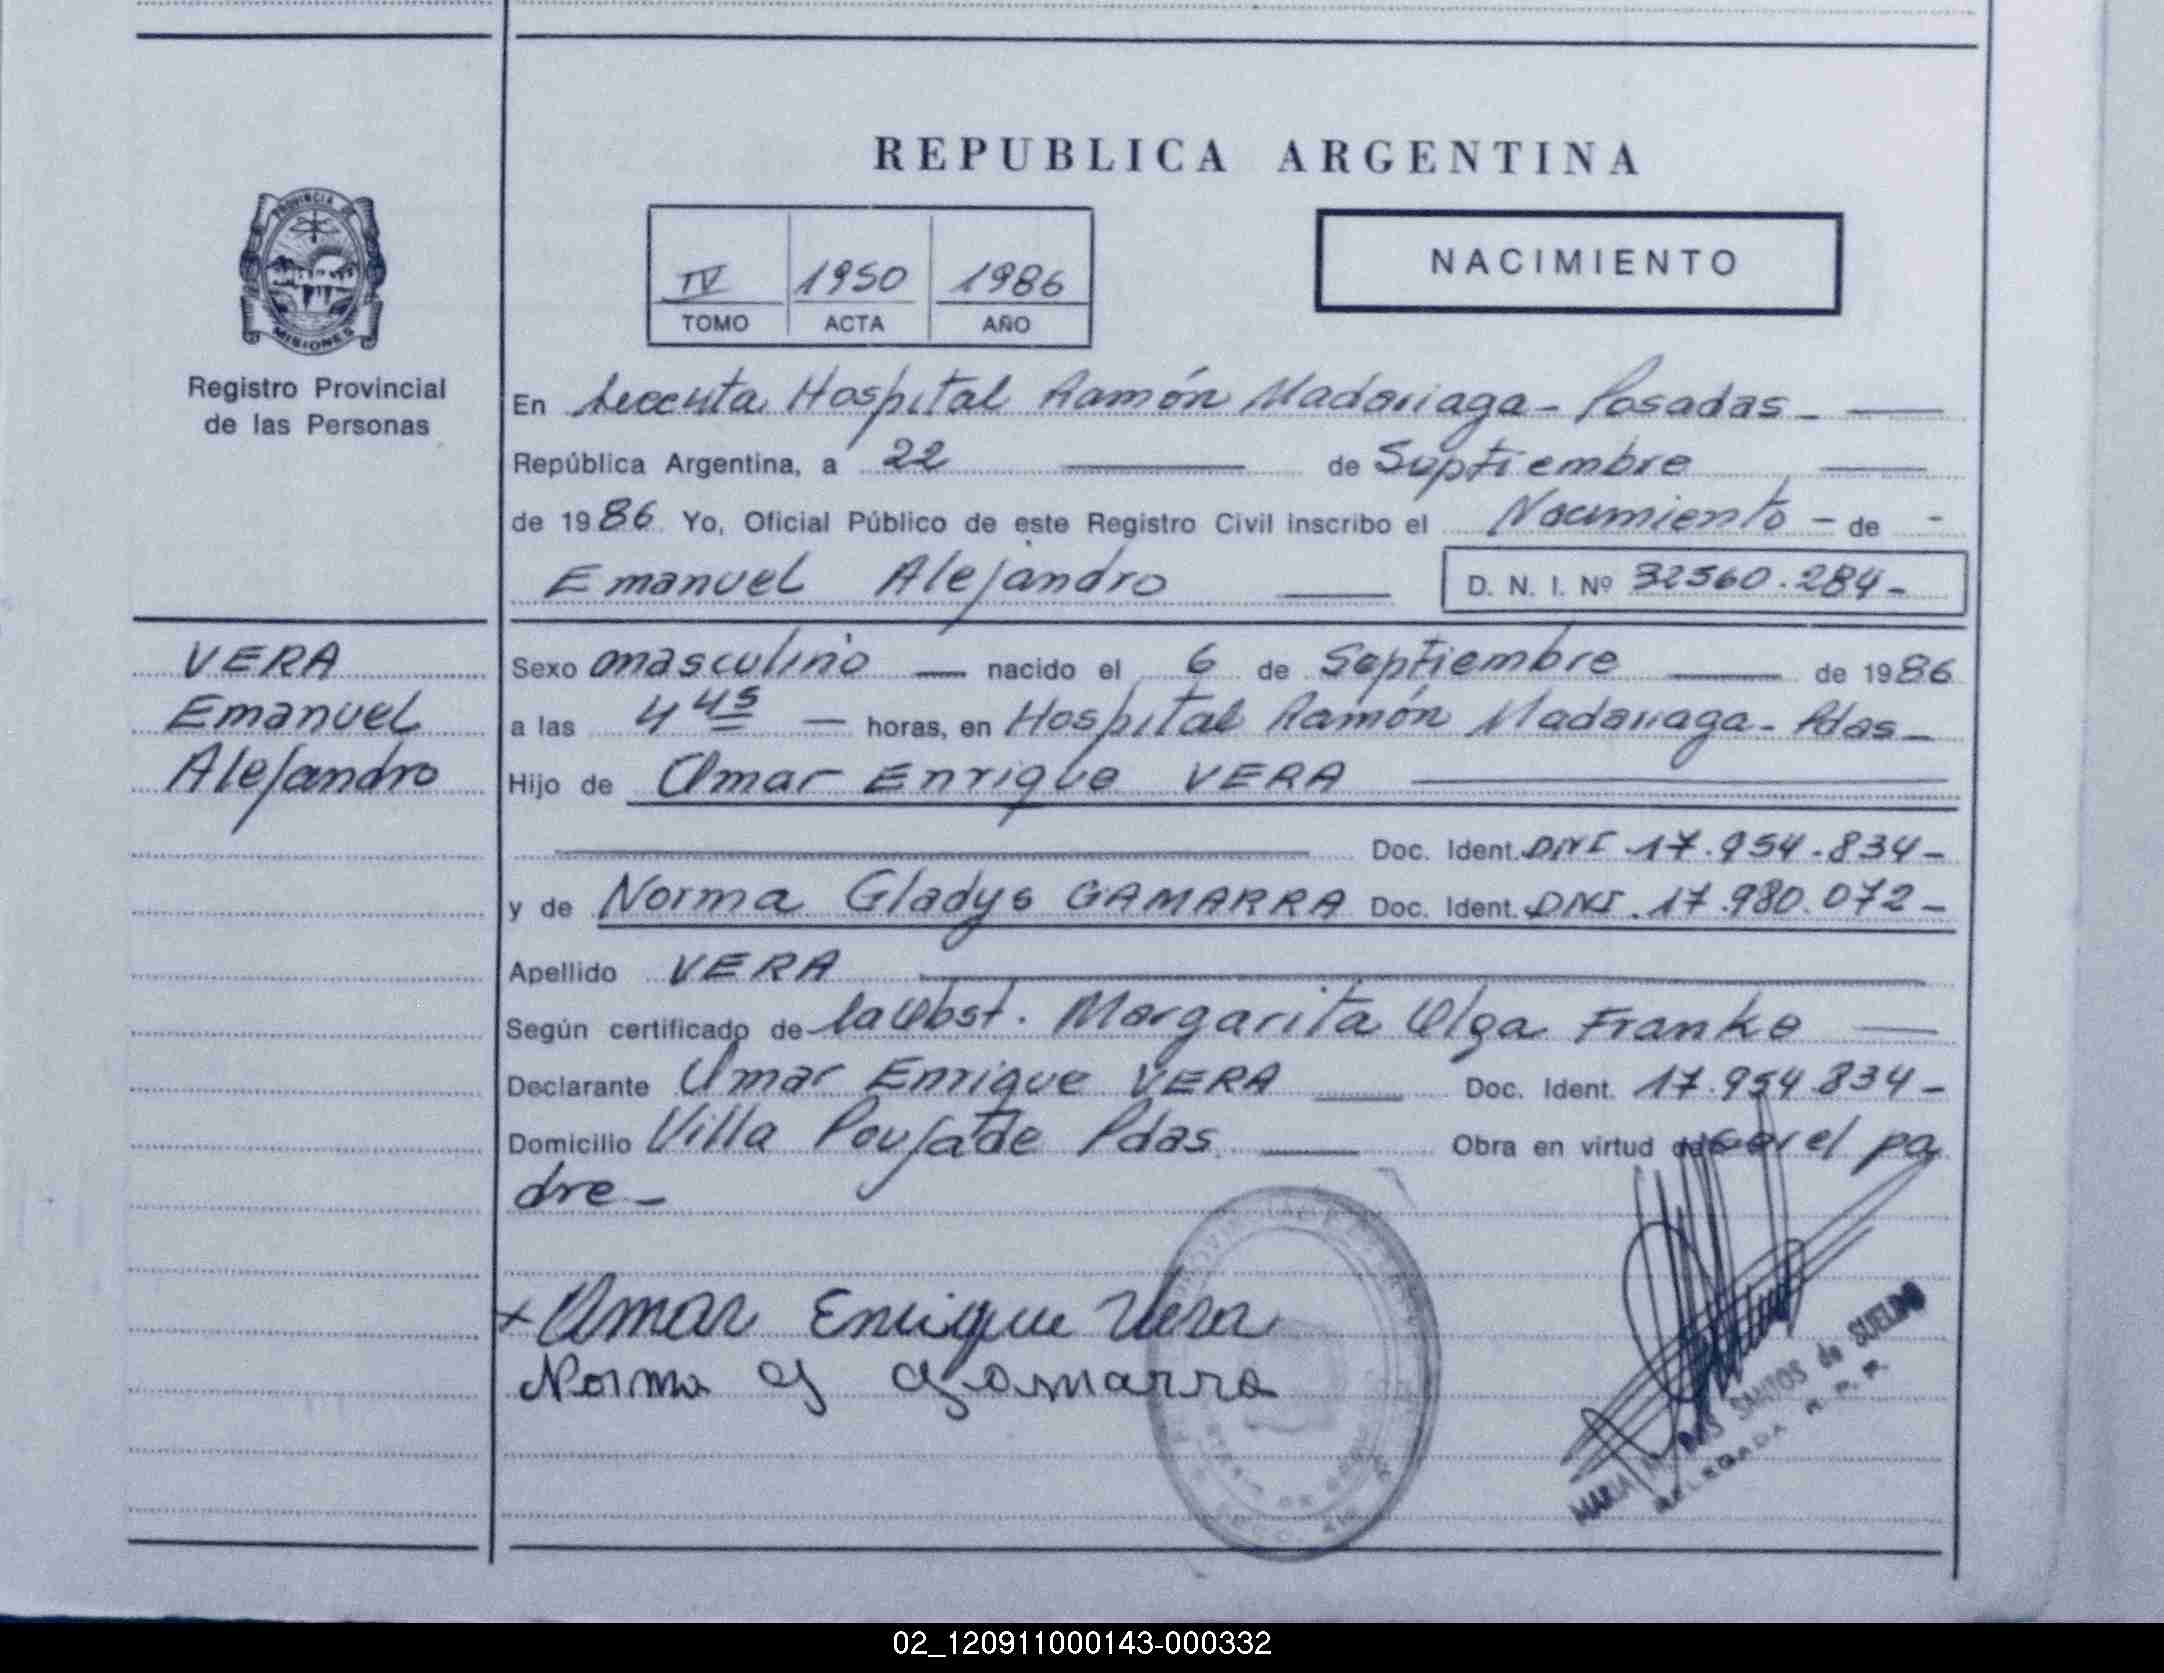 REPUBLICA ARGENTINA
PROVINCIA DE
MISIONES
Registro Provincial
de las Personas
IV 1950 1986
TOMO ACTA AÑO
NACIMIENTO
En Hospital Ramón Madariaga - Posadas -
República Argentina, a 22 de Septiembre
de 1986 Yo, Oficial Público de este Registro Civil inscribo el Nacimiento - de -
Emanuel Alejandro D. N. I. Nº 32360.284-
VERA
Emanuel
Alejandro
Sexo masculino — nacido el 6 de Septiembre de 1986
a las 4 45 — horas, en Hospital Ramón Madariaga - Pdas -
Hijo de Omar Enrique VERA
Doc. Ident. DNI 17.954.834-
y de Norma Gladys GAMARRA Doc. Ident. DNI. 17.980.072-
Apellido VERA
Según certificado de la Obst. Margarita Olga Franke
Declarante Omar Enrique VERA Doc. Ident. 17.954.834-
Domicilio Villa Poujade Pdas. Obra en virtud de ser el pa
dre -
x Omar Enrique Vera
Norma G Gamarra
MARIA DOS SANTOS de SUELDO
DELEGADA R. P. P.
02_120911000143-000332